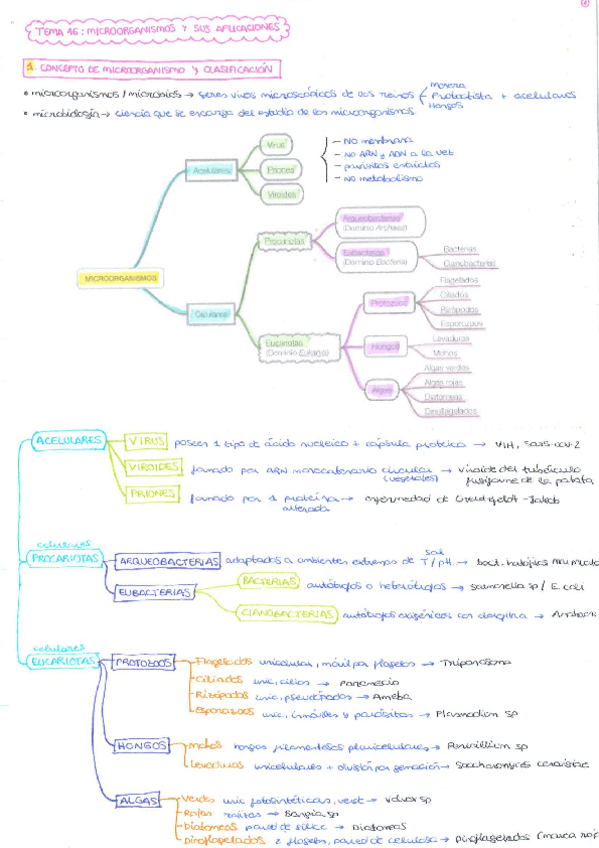 TEMA 16: MICROORGANISMOS Y SUS APLICACIONES
1. CONCEPTO DE MICROORGANISMO Y CLASIFICACIÓN
• microorganismos / microbios → seres vivos microscópicos de los reinos Monera Protoctista Hongos + acelulares
• microbiología → ciencia que se encarga del estudio de los microorganismos.
MICROORGANISMOS
Acelulares
Virus
Priones
Viroides
- NO membrana
- NO ARN y ADN a la vez
- parásitos estrictos
- NO metabolismo
Celulares
Procariotas
Arqueobacterias
(Dominio Archaea)
Eubacterias
(Dominio Bacteria)
Bacterias
Cianobacterias
Eucariotas
(Dominio Eukarya)
Protozoos
Flagelados
Ciliados
Rizópodos
Esporozoos
Hongos
Levaduras
Mohos
Algas
Algas verdes
Algas rojas
Diatomeas
Dinoflagelados
ACELULARES
VIRUS poseen 1 tipo de ácido nucleico + cápsula proteica → VIH, Sars-cov-2
VIROIDES formado por ARN monocatenario circular (vegetales) → viroide del tubérculo fusiforme de la patata
PRIONES formado por 1 proteína alterada → enfermedad de Creutzfeldt-Jakob
celulares
PROCARIOTAS
ARQUEOBACTERIAS adaptados a ambientes extremos de T/pH sal → bact. halófilas
EUBACTERIAS
BACTERIAS autótrofos o heterótrofos → salmonella sp / E. coli
CIANOBACTERIAS autótrofos oxigénicos con clorofila →
celulares
EUCARIOTAS
PROTOZOOS
Flagelados unicelular, móvil por flagelos → Tripanosoma
Ciliados unic, cilios → Paramecio
Rizópodos unic, pseudópodos → Ameba
Esporozoos unic, inmóviles y parásitos → Plasmodium sp
HONGOS
Mohos hongos filamentosos pluricelulares → Penicillium sp
Levaduras unicelulares + división por gemación → Saccharomyces cerevisiae
ALGAS
Verdes unic fotosintéticas, verde → Volvox sp
Rojas rojitas → sp
Diatomeas pared de sílice → Diatomeas
Dinoflagelados 2 flagelos, pared de celulosa → Dinoflagelados (marea roja